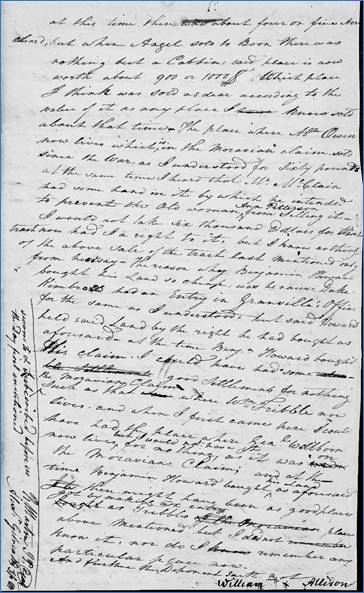 at the time there was about four or five Acre
cleard, but when Angel sold to Boon there was
nothing but a Cabbin, said place is now
worth about 900 or 1000 $. Which place
I think was sold as dear according to the
value of it as any place I knew sold
about that time. The place where Mrs Owen
now lives which is in the Moravian claim sold
since the War, as I understood for Sixty pounds
at the same time I heard that Mr. McClain
had some hand in it by which he intended
to prevent the Old woman from Selling it
I would not take six thousand Dollars for that
tract now had I a right to it, but I know nothing
of the above Sale of the tract last mentioned only
from hersay - The reason why Benjamin Howard
bought Land so cheap, was because Luke
had an Entry in Granvill's Office
for the same as I understood, but said Howard
held said Land by the right he had bought as
aforesaid, at the time Benj. Howard bought
This claim. I could have had some
good Settlements for nothing
Such as that where Wm Tribble now
lives. and when I first came here I could
have had the place where Gen.l Wellborn
now lives for nothing, but I would not have it as it was
the Moravian Claim, and at the
time Benjamin Howard bought as aforesaid
then might have been as good places
got
above Mentioned, but I did not
know it, nor do I remember any
particular place now.
And further the Deponent saith not
William + Allison
sworn to & Subscribed before
the Day first mentioned